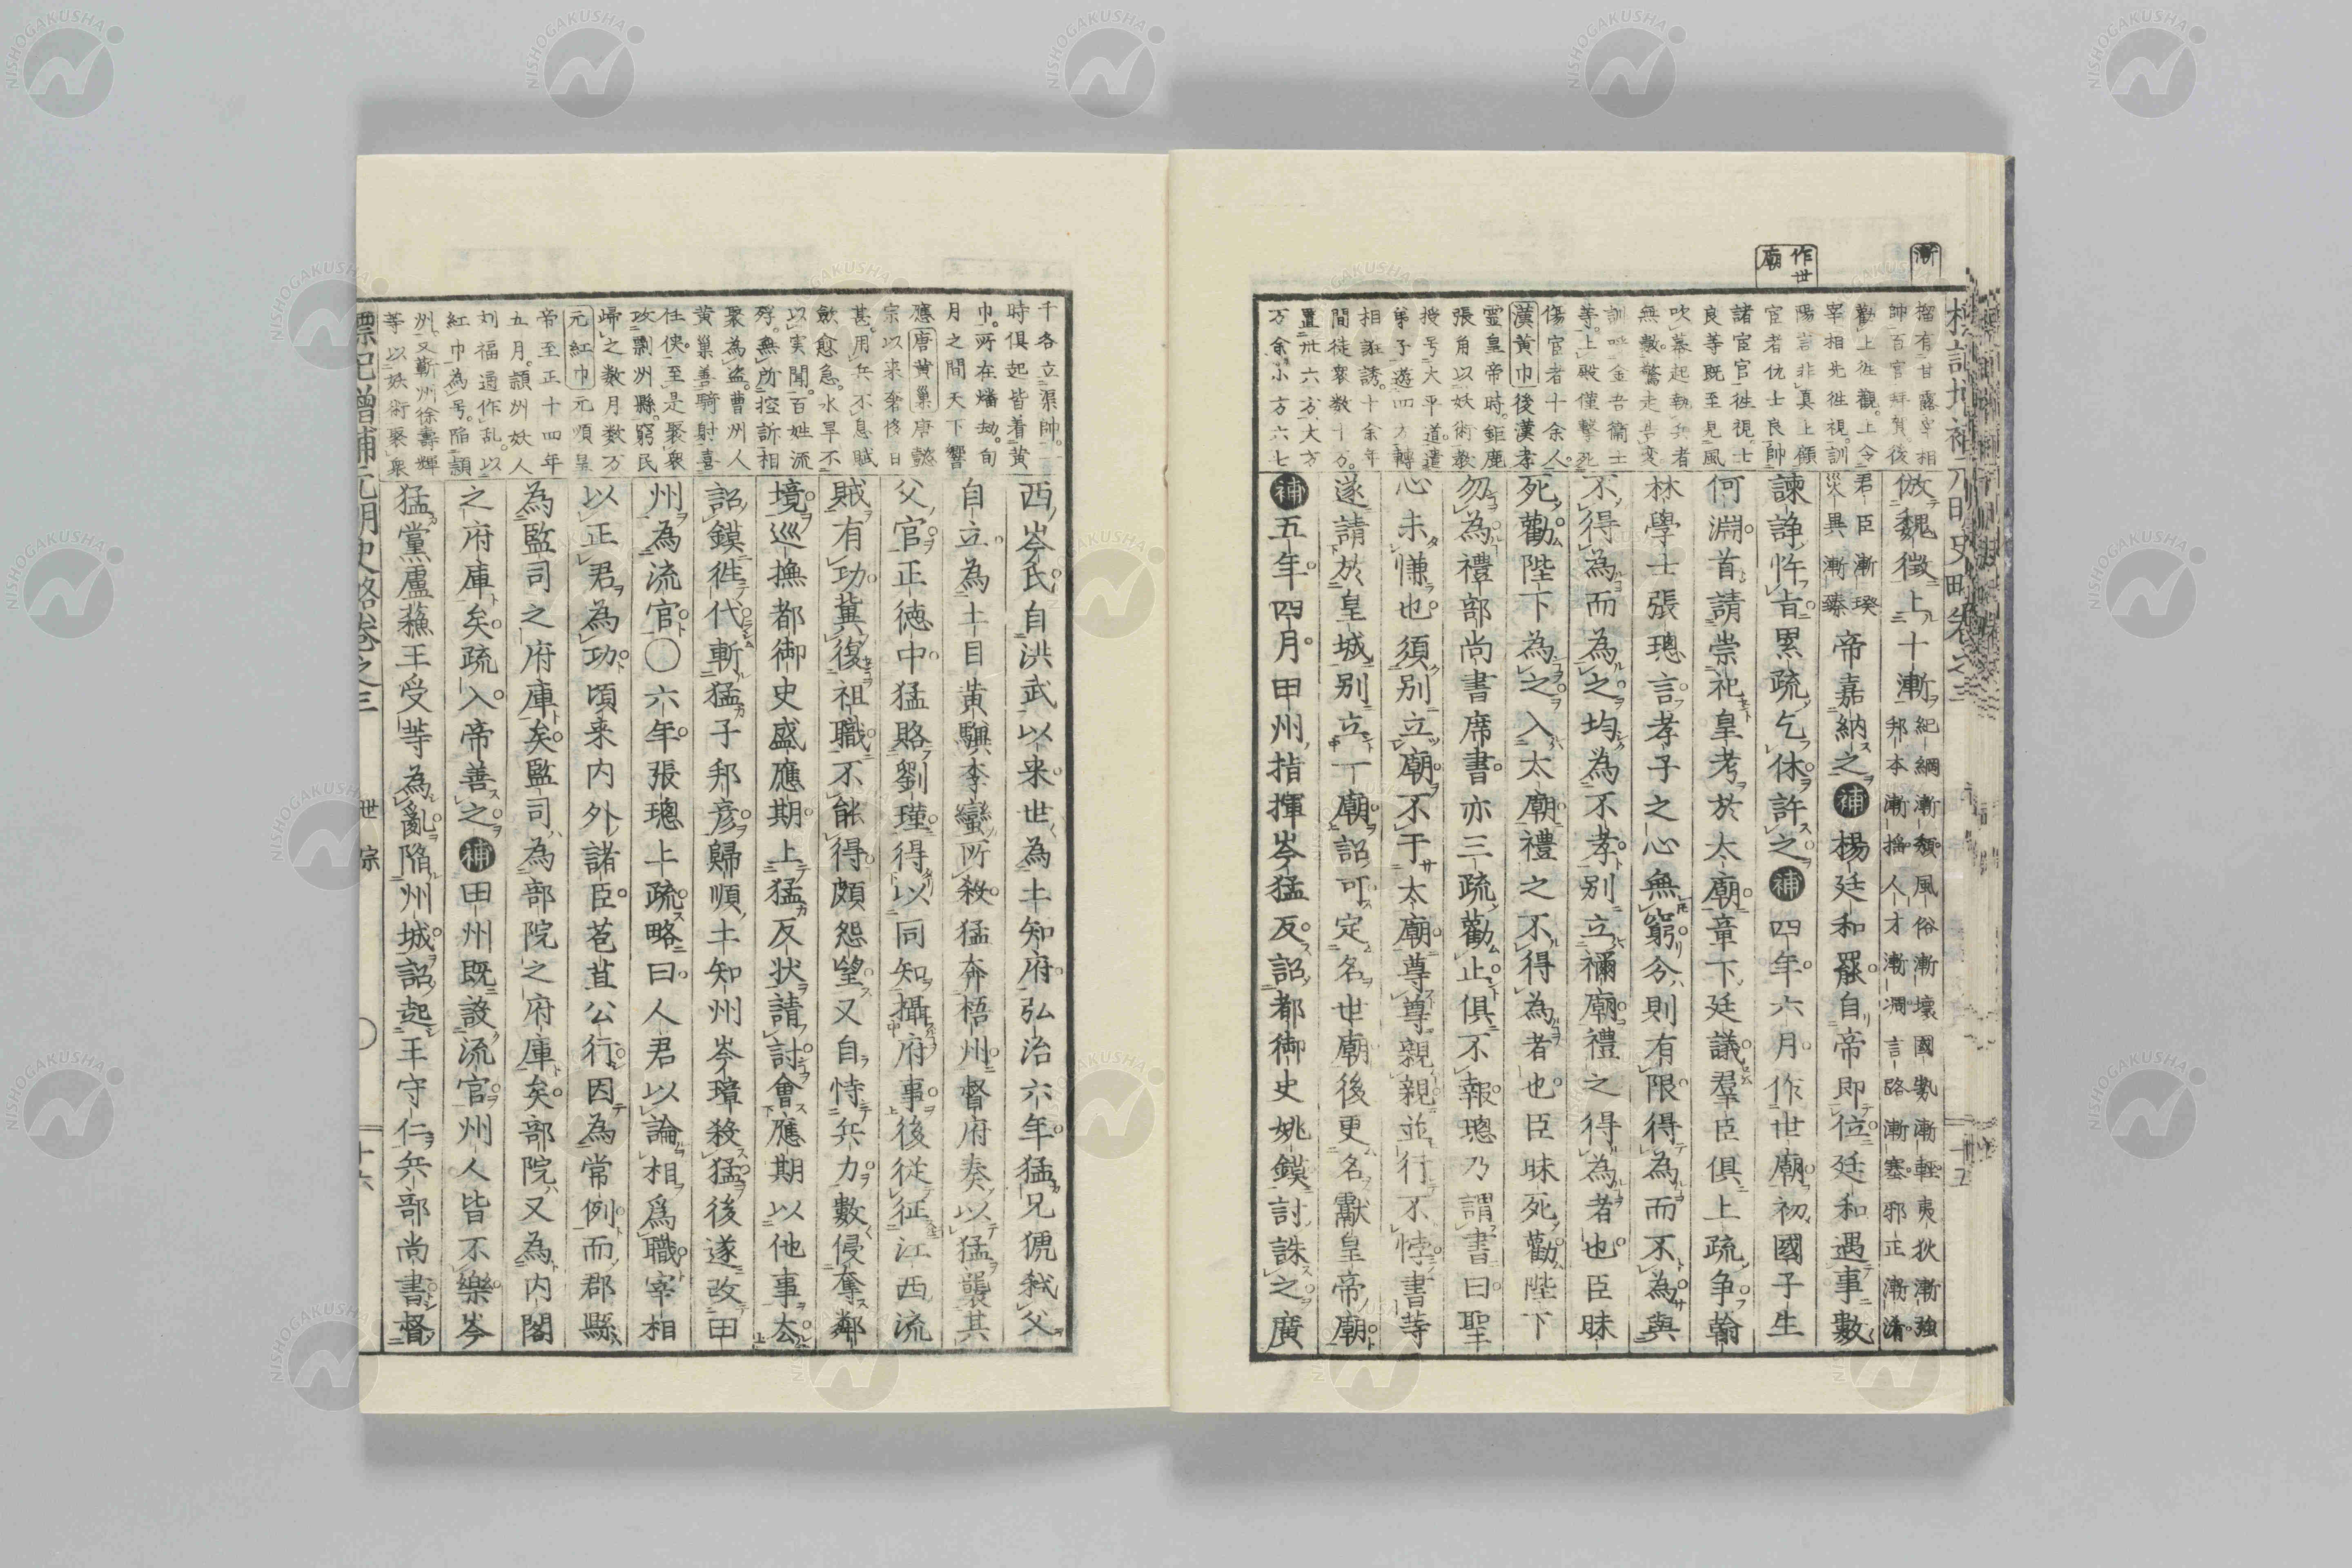 漸
作世
廟
榴有甘露宰相
帥百官拜賀後
勸上徃觀上令
宰相先徃視訓
陽言非真上顧
宦者仇士良帥
諸宦官徃視士
良等既至見風
吹幕起執兵者
無數驚走告変
訓呼金吾衛士
等上殿僅擊死
傷宦者十余人
漢黄巾後漢孝
霊皇帝時鉅鹿
張角以妖術教
授号大平道遣
弟子遊四方轉
相誑誘十余年
間徒衆数十万
置卅六方大方
万余小方六七
倣魏徵上十漸
紀綱漸頽風俗漸壞國勢漸輕夷狄漸強
邦本漸揺人才漸凋言路漸塞邪正漸淆
君臣漸暌
災異漸臻
帝嘉納之補楊廷和罷自帝即位廷和遇事數
諫諍忤旨累疏乞休許之補四年六月作世廟初國子生
何淵首請崇祀皇考於太廟章下廷議羣臣俱上疏争翰
林學士張璁言孝子之心無窮分則有限得為而不為與
不得為而為之均為不孝別立禰廟禮之得為者也臣昧
死勸陛下為之入太廟禮之不得為者也臣昧死勸陛下
勿為禮部尚書席書亦三疏勸止俱不報璁乃謂書曰聖
心未慊也須別立廟不于太廟尊尊親親並行不悖書等
遂請於皇城別立一廟詔可定名世廟後更名獻皇帝廟
補五年四月田州指揮岑猛反詔都御史姚鏌討誅之廣
千各立渠帥二
時俱起皆着黄
巾所在燔劫旬
月之間天下響
應唐黄巢唐懿
宗以来奢侈日
甚用兵不息賦
斂愈急水旱不
以実聞百姓流
殍無所控訴相
聚為盗曹州人
黄巢善騎射喜
任侠至是聚衆
攻剽州縣窮民
歸之数月数万
元紅巾元順皇
帝至正十四年
五月潁州妖人
刘福通作乱以
紅巾為号陥潁
州又蘄州徐壽輝
等以妖術聚衆
西岑氏自洪武以来世為土知府弘治六年猛兄猇弑父
自立為土目黄驥李蠻所殺猛奔梧州督府奏以猛襲其
父官正徳中猛賂劉瑾得以同知攝府事後従征江西流
賊有功冀復祖職不能得頗怨望又自恃兵力數侵奪鄰
境巡撫都御史盛應期上猛反状請討會應期以他事去
詔鏌徃代斬猛子邦彦歸順土知州岑璋殺猛後遂改田
州為流官〇六年張璁上疏略曰人君以論相爲職宰相
以正君為功頃来内外諸臣苞苴公行因為常例而郡縣
為監司之府庫矣監司為部院之府庫矣部院又為内閣
之府庫矣疏入帝善之補田州既設流官州人皆不樂岑
猛黨盧蘓王受等為亂陥州城詔起王守仁兵部尚書督
標記增補元明史略巻之三
世宗
十六